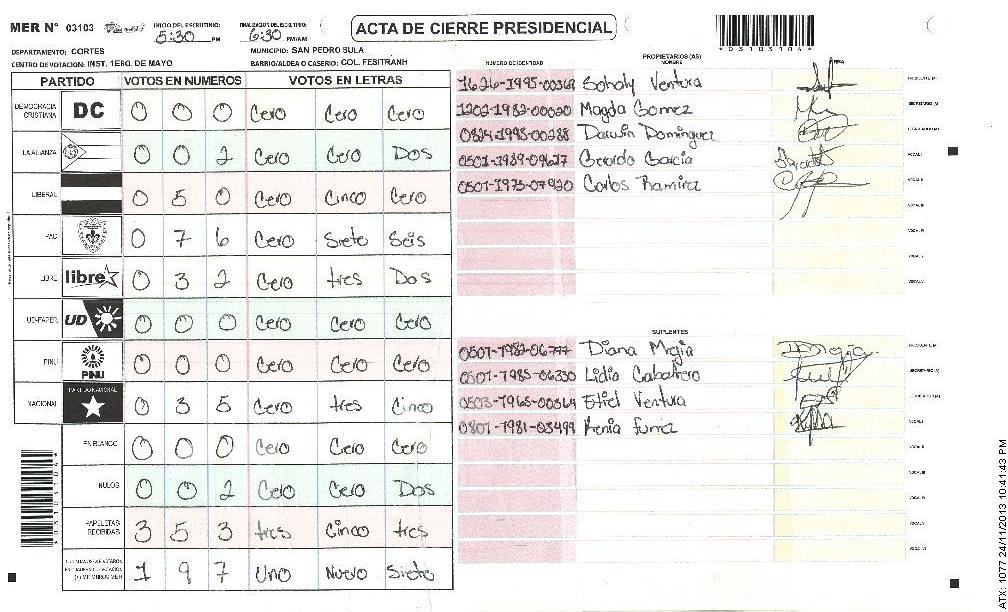 MER N° 03103 INICIO DEL ESCRUTINIO: 5:30 PM FINALIZACION DEL ESCRUTINIO: 6:30 PM/AM ACTA DE CIERRE PRESIDENCIAL
DEPARTAMENTO: CORTES MUNICIPIO: SAN PEDRO SULA
CENTRO DE VOTACION: INST. 1ERO. DE MAYO BARRIO/ALDEA O CASERIO: COL. FESITRANH
PARTIDO VOTOS EN NUMEROS VOTOS EN LETRAS
DEMOCRACIA CRISTIANA DC 0 0 0 Cero Cero Cero
LA ALIANZA 0 0 2 Cero Cero Dos
LIBERAL 0 5 0 Cero Cinco Cero
PAC 0 7 6 Cero Siete Seis
LIBRE libre 0 3 2 Cero tres Dos
UD-FAPER UD 0 0 0 Cero Cero Cero
PINU PINU 0 0 0 Cero Cero Cero
NACIONAL PARTIDO NACIONAL 0 3 5 Cero tres Cinco
EN BLANCO 0 0 0 Cero Cero Cero
NULOS 0 0 2 Cero Cero Dos
PAPELETAS RECIBIDAS 3 5 3 tres Cinco tres
(+) MIEMBROS MER 1 9 7 Uno Nueve Siete
PROPIETARIOS (AS)
NUMERO DE IDENTIDAD NOMBRE FIRMA
1626-1995-00368 Sohaly Ventura PRESIDENTE (A)
1202-1982-00020 Magda Gomez SECRETARIO (A)
-1995-00288 Darwin Dominguez ESCRUTADOR (A)
0501-1989-09677 Gerardo Garcia VOCAL I
0501-1973-07920 Carlos Ramirez VOCAL II
VOCAL III
VOCAL IV
VOCAL V
VOCAL VI
SUPLENTES
0501-1982-06777 Diana Mejia PRESIDENTE (A)
0501-1985-06330 Lidia Caballero SECRETARIO (A)
0503-1965-00364 Ventura ESCRUTADOR (A)
0801-1981-03499 Kenia Funez VOCAL I
VOCAL II
VOCAL III
VOCAL IV
VOCAL V
VOCAL VI
ATX: 1077 24/11/2013 10:41:43 PM